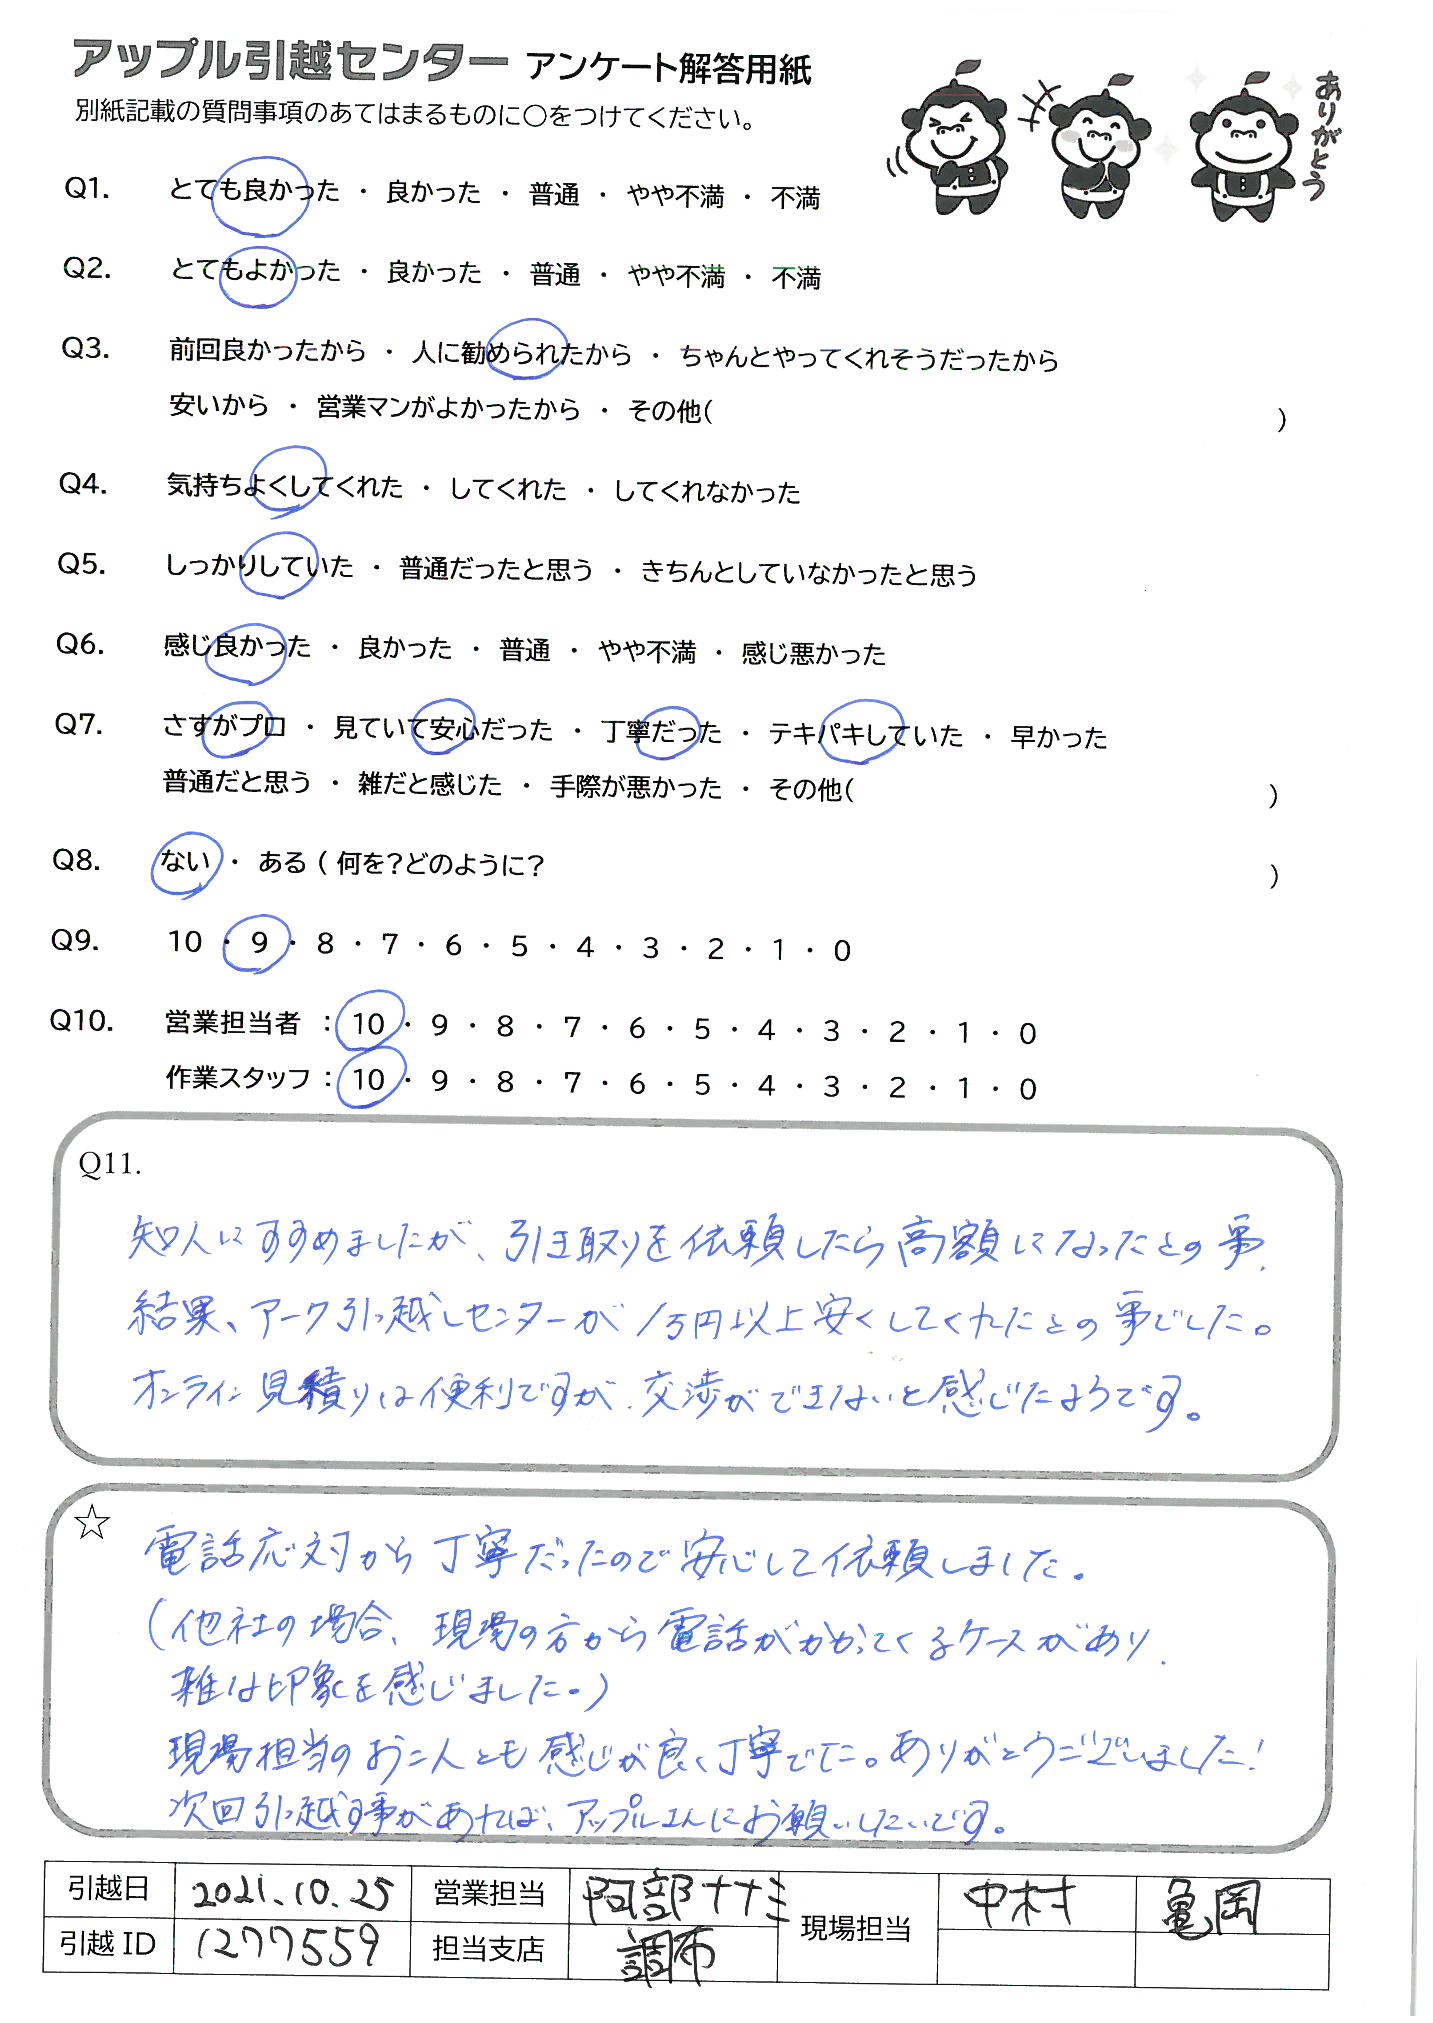 アップル引越センター アンケート解答用紙
別紙記載の質問事項のあてはまるものに○をつけてください。
ありがとう
Q1. とても良かった ・ 良かった ・ 普通 ・ やや不満 ・ 不満
Q2. とてもよかった ・ 良かった ・ 普通 ・ やや不満 ・ 不満
Q3. 前回良かったから ・ 人に勧められたから ・ ちゃんとやってくれそうだったから
安いから ・ 営業マンがよかったから ・ その他( )
Q4. 気持ちよくしてくれた ・ してくれた ・ してくれなかった
Q5. しっかりしていた ・ 普通だったと思う ・ きちんとしていなかったと思う
Q6. 感じ良かった ・ 良かった ・ 普通 ・ やや不満 ・ 感じ悪かった
Q7. さすがプロ ・ 見ていて安心だった ・ 丁寧だった ・ テキパキしていた ・ 早かった
普通だと思う ・ 雑だと感じた ・ 手際が悪かった ・ その他( )
Q8. ない ・ ある ( 何を?どのように? )
Q9. 10 ・ 9 ・ 8 ・ 7 ・ 6 ・ 5 ・ 4 ・ 3 ・ 2 ・ 1 ・ 0
Q10. 営業担当者 : 10 ・ 9 ・ 8 ・ 7 ・ 6 ・ 5 ・ 4 ・ 3 ・ 2 ・ 1 ・ 0
作業スタッフ : 10 ・ 9 ・ 8 ・ 7 ・ 6 ・ 5 ・ 4 ・ 3 ・ 2 ・ 1 ・ 0
Q11.
知人にすすめましたが、引き取りを依頼したら高額になったとの事、
結果、アーク引っ越しセンターが1万円以上安くしてくれたとの事でした。
オンライン見積りは便利ですが、交渉ができないと感じたようです。
☆ 電話応対から丁寧だったので安心して依頼しました。
(他社の場合、現場の方から電話がかかってくるケースがあり、
雑な印象を感じました。)
現場担当のお二人とも感じが良く丁寧でした。ありがとうございました!
次回引っ越す事があれば、アップルさんにお願いしたいです。
引越日 2021.10.25 営業担当 阿部ナナミ 現場担当 中村 亀岡
引越 ID 1277559 担当支店 調布